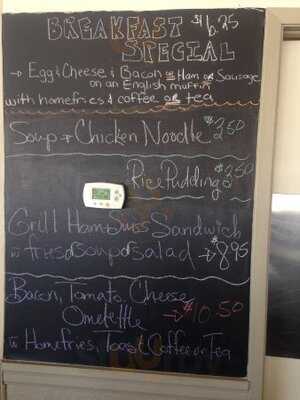 BREAKFAST $6.25
SPECIAL
→ Egg & Cheese & Bacon or Ham or Sausage
on an English muffin
with homefries & coffee or tea
Soup → Chicken Noodle $3.50
Rice Pudding $3.50
Grill Ham Swiss Sandwich
w fries or soup or salad → $8.95
Bacon, Tomato, Cheese
Omelette → $10.50
w Homefries, Toast Coffee or Tea